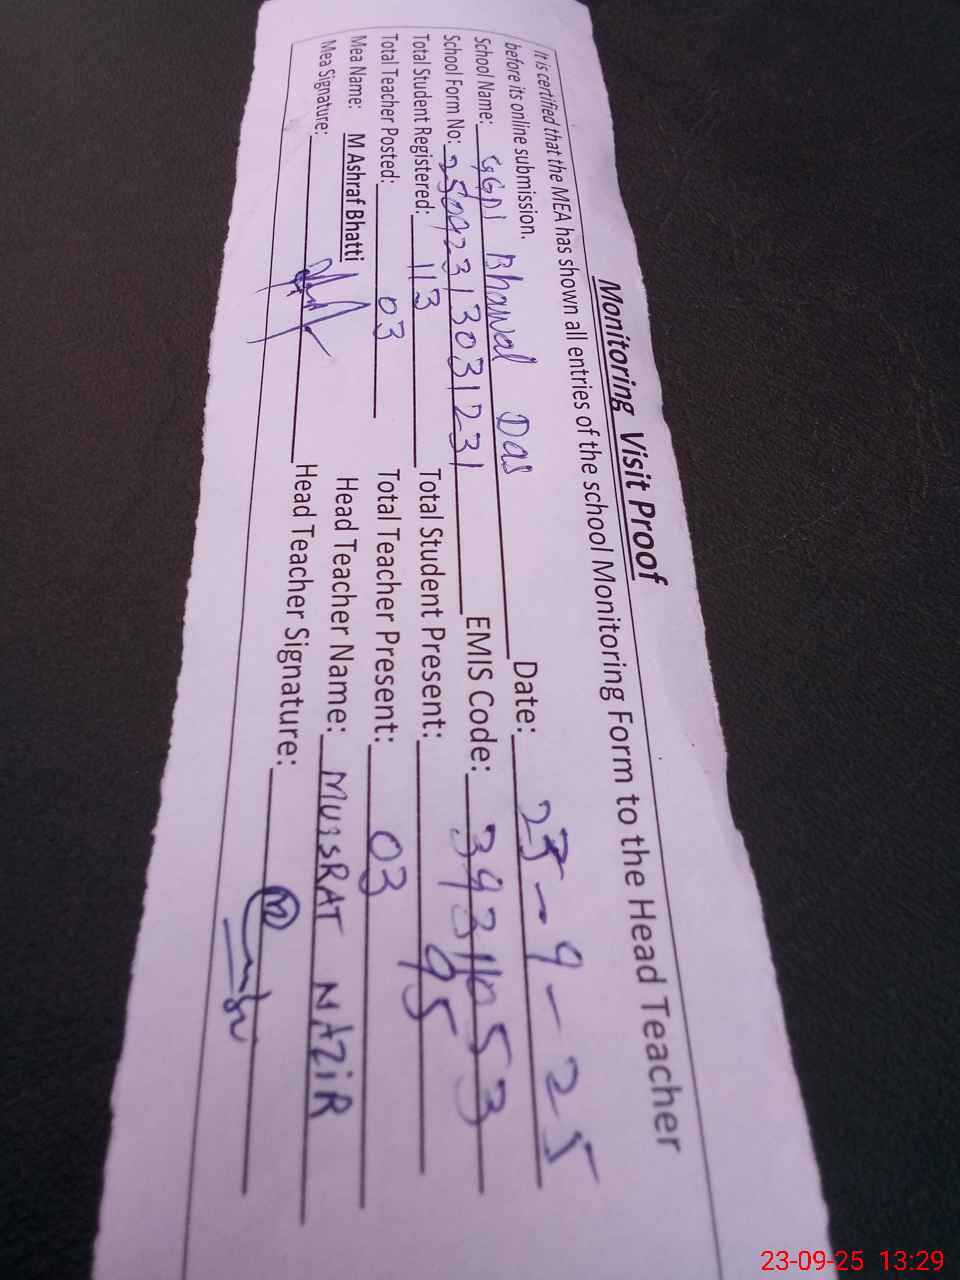 Monitoring Visit Proof
It is certified that the MEA has shown all entries of the school Monitoring Form to the Head Teacher
before its online submission.
School Name: GGPS Bhawal Das Date: 23-9-25
School Form No: 25092313031231 EMIS Code: 39311053
Total Student Registered: 113 Total Student Present: 95
Total Teacher Posted: 03 Total Teacher Present: 03
Mea Name: M Ashraf Bhatti Head Teacher Name: MUSSRAT NAZIR
Mea Signature: Head Teacher Signature:
23-09-25 13:29